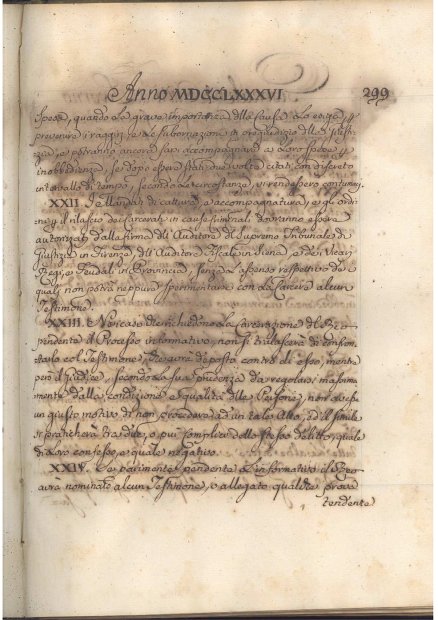 Anno MDCCLXXXVI. 299
spese, quando la grave importanza della Causa lo esiga, per
prevenire i raggiri e le subornazioni in pregiudizio della Giusti-
zia, e potranno ancora farsi accompagnare a loro spese per
inobbedienza, se dopo essere stati due volte citati con discreto
intervallo di tempo, secondo le circostanze, si rendessero contumaci.
XXII. I Mandati di cattura, e accompagnatura, e gli ordi-
ni per il rilascio da carcerati in cause criminali dovranno essere
autorizzati dalla firma dell' Auditore del Supremo Tribunale di
Giustizia in Firenze, dell' Auditore Fiscale in Siena, e dei Vicari
Regi, o Feudali in Provincia, senza l'assenso respettivo de'
quali non potrà neppure sperimentarsi con la Carcere alcun
Testimone.
XXIII. Nel caso che richiedono la carcerazione del Reo
pendente il Processo informativo, non si tralascerà di confron-
tarlo col Testimone, che avrà deposto contro di esso, mentre
però il Giudice, secondo la sua prudenza da regolarsi massima-
mente dalla condizione e qualità delle Persone, non avesse
un giusto motivo di non procedere ad un tale Atto, ed il simile
si praticherà tra due, o più complici dello stesso delitto, quale
di loro confesso, e quale negativo.
XXIV. Se parimente pendente l'informativo il Reo
avrà nominato alcun Testimone, o allegato qualche prova
tendente